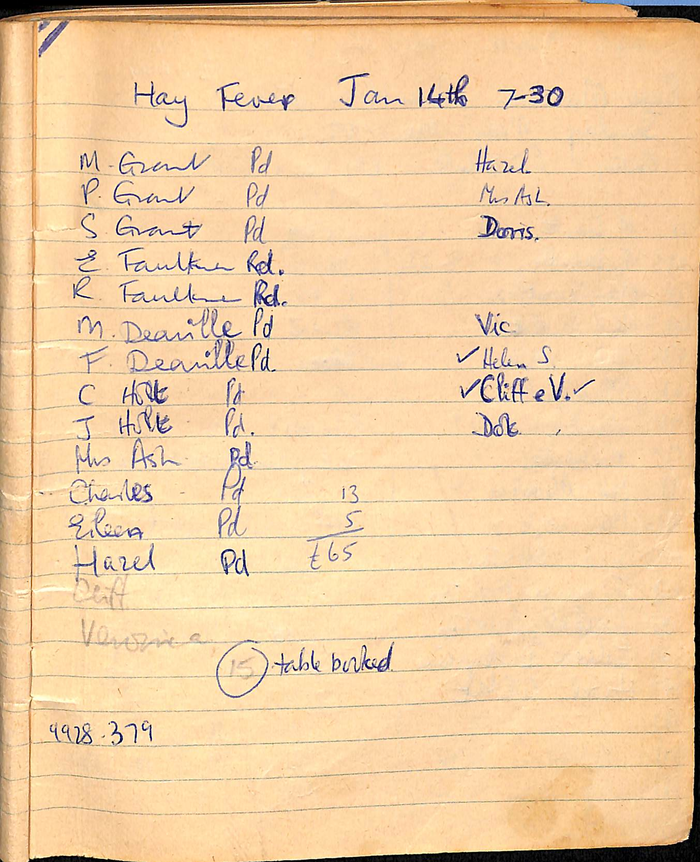 Hay Fever Jan 14th 7-30
M. Grant Pd Hazel
P. Grant Pd Mrs Ash.
S Grant Pd Doris.
E Faulkner Pd.
R. Faulkner Pd.
M. Deaville Pd Vic
F. Deaville Pd. ✓ Helen S.
C Holt Pd ✓ Cliff e V. ✓
J Holt Pd. Dot
Mrs Ash Pd
Charles Pd 13
Eileen Pd 5
Hazel Pd £65
Cliff
Veronica
15 table booked
9928.379